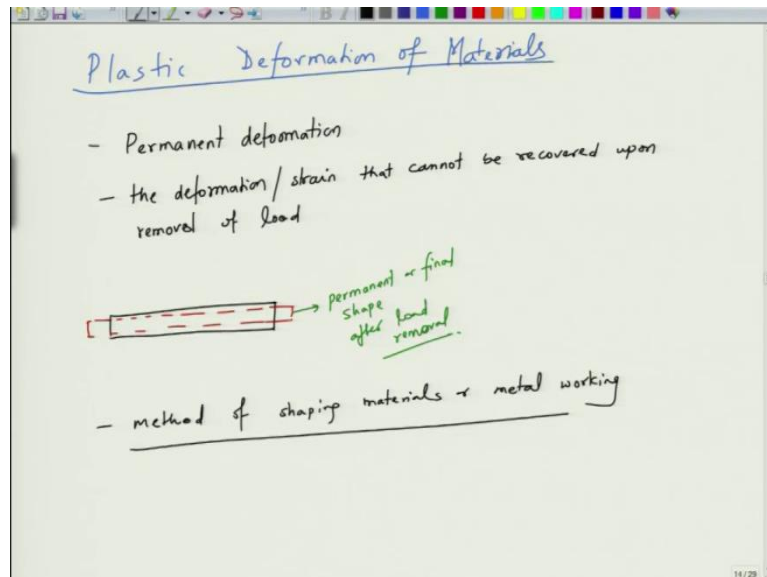 Plastic Deformation of Materials
- Permanent deformation
- the deformation/strain that cannot be recovered upon
removal of load
permanent or final
shape
after load
removal.
- method of shaping materials or metal working
14/29